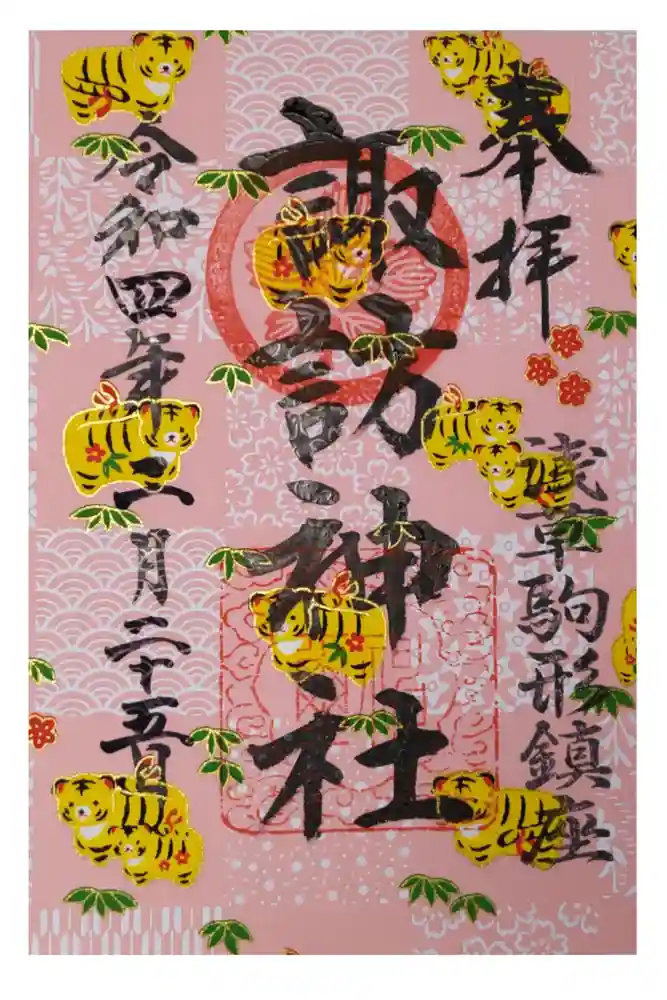 奉拝
浅草駒形鎮座
諏訪神社
令和四年二月二十五日